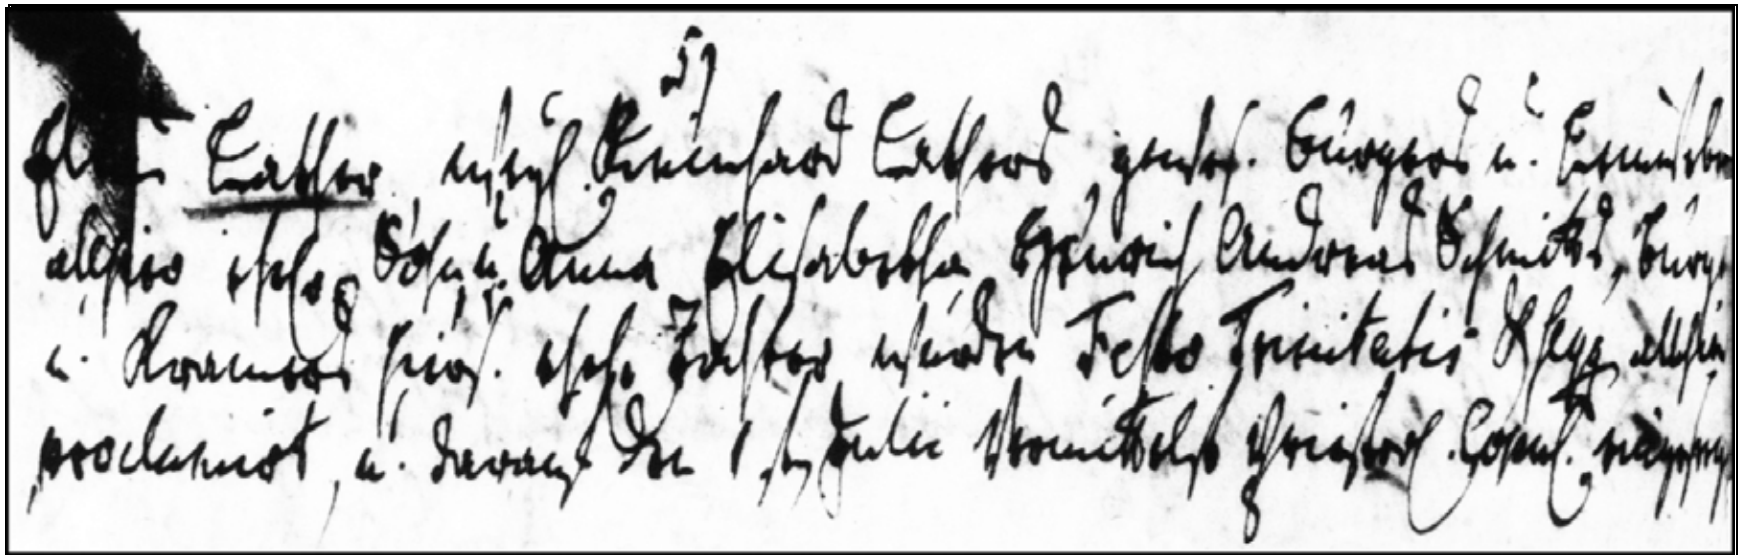 Cather, weyl. Reinhard Cathers gewes. Bürgers u.
allhier ehel. Sohn, u. Anna Elisabetha, Henrich Andreas Schmidts, Burg
u. Kramers hies. ehel. Tochter wurden Festo Trinitatis allhier
proclamirt, u. darauf den 1ten Julii Vermittelst Priesterl. Copul. eingeseg